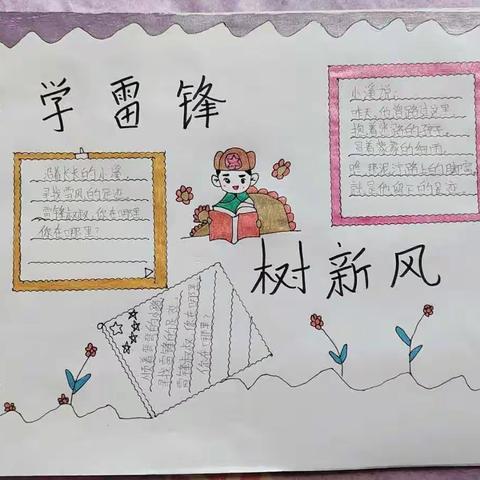 学雷锋
沿着长长的小溪
寻找雷风的足迹
雷锋叔叔,你在哪里
你在哪里?
小溪说:
昨天,他曾路过这里
抱着迷路的孩子
冒着蒙蒙的细雨
瞧,那泥泞路上的脚窝
就是他留下的足迹
树新风
顺着弯弯的小路
寻找雷锋的足迹
雷锋叔叔,你在哪里
你在哪里?